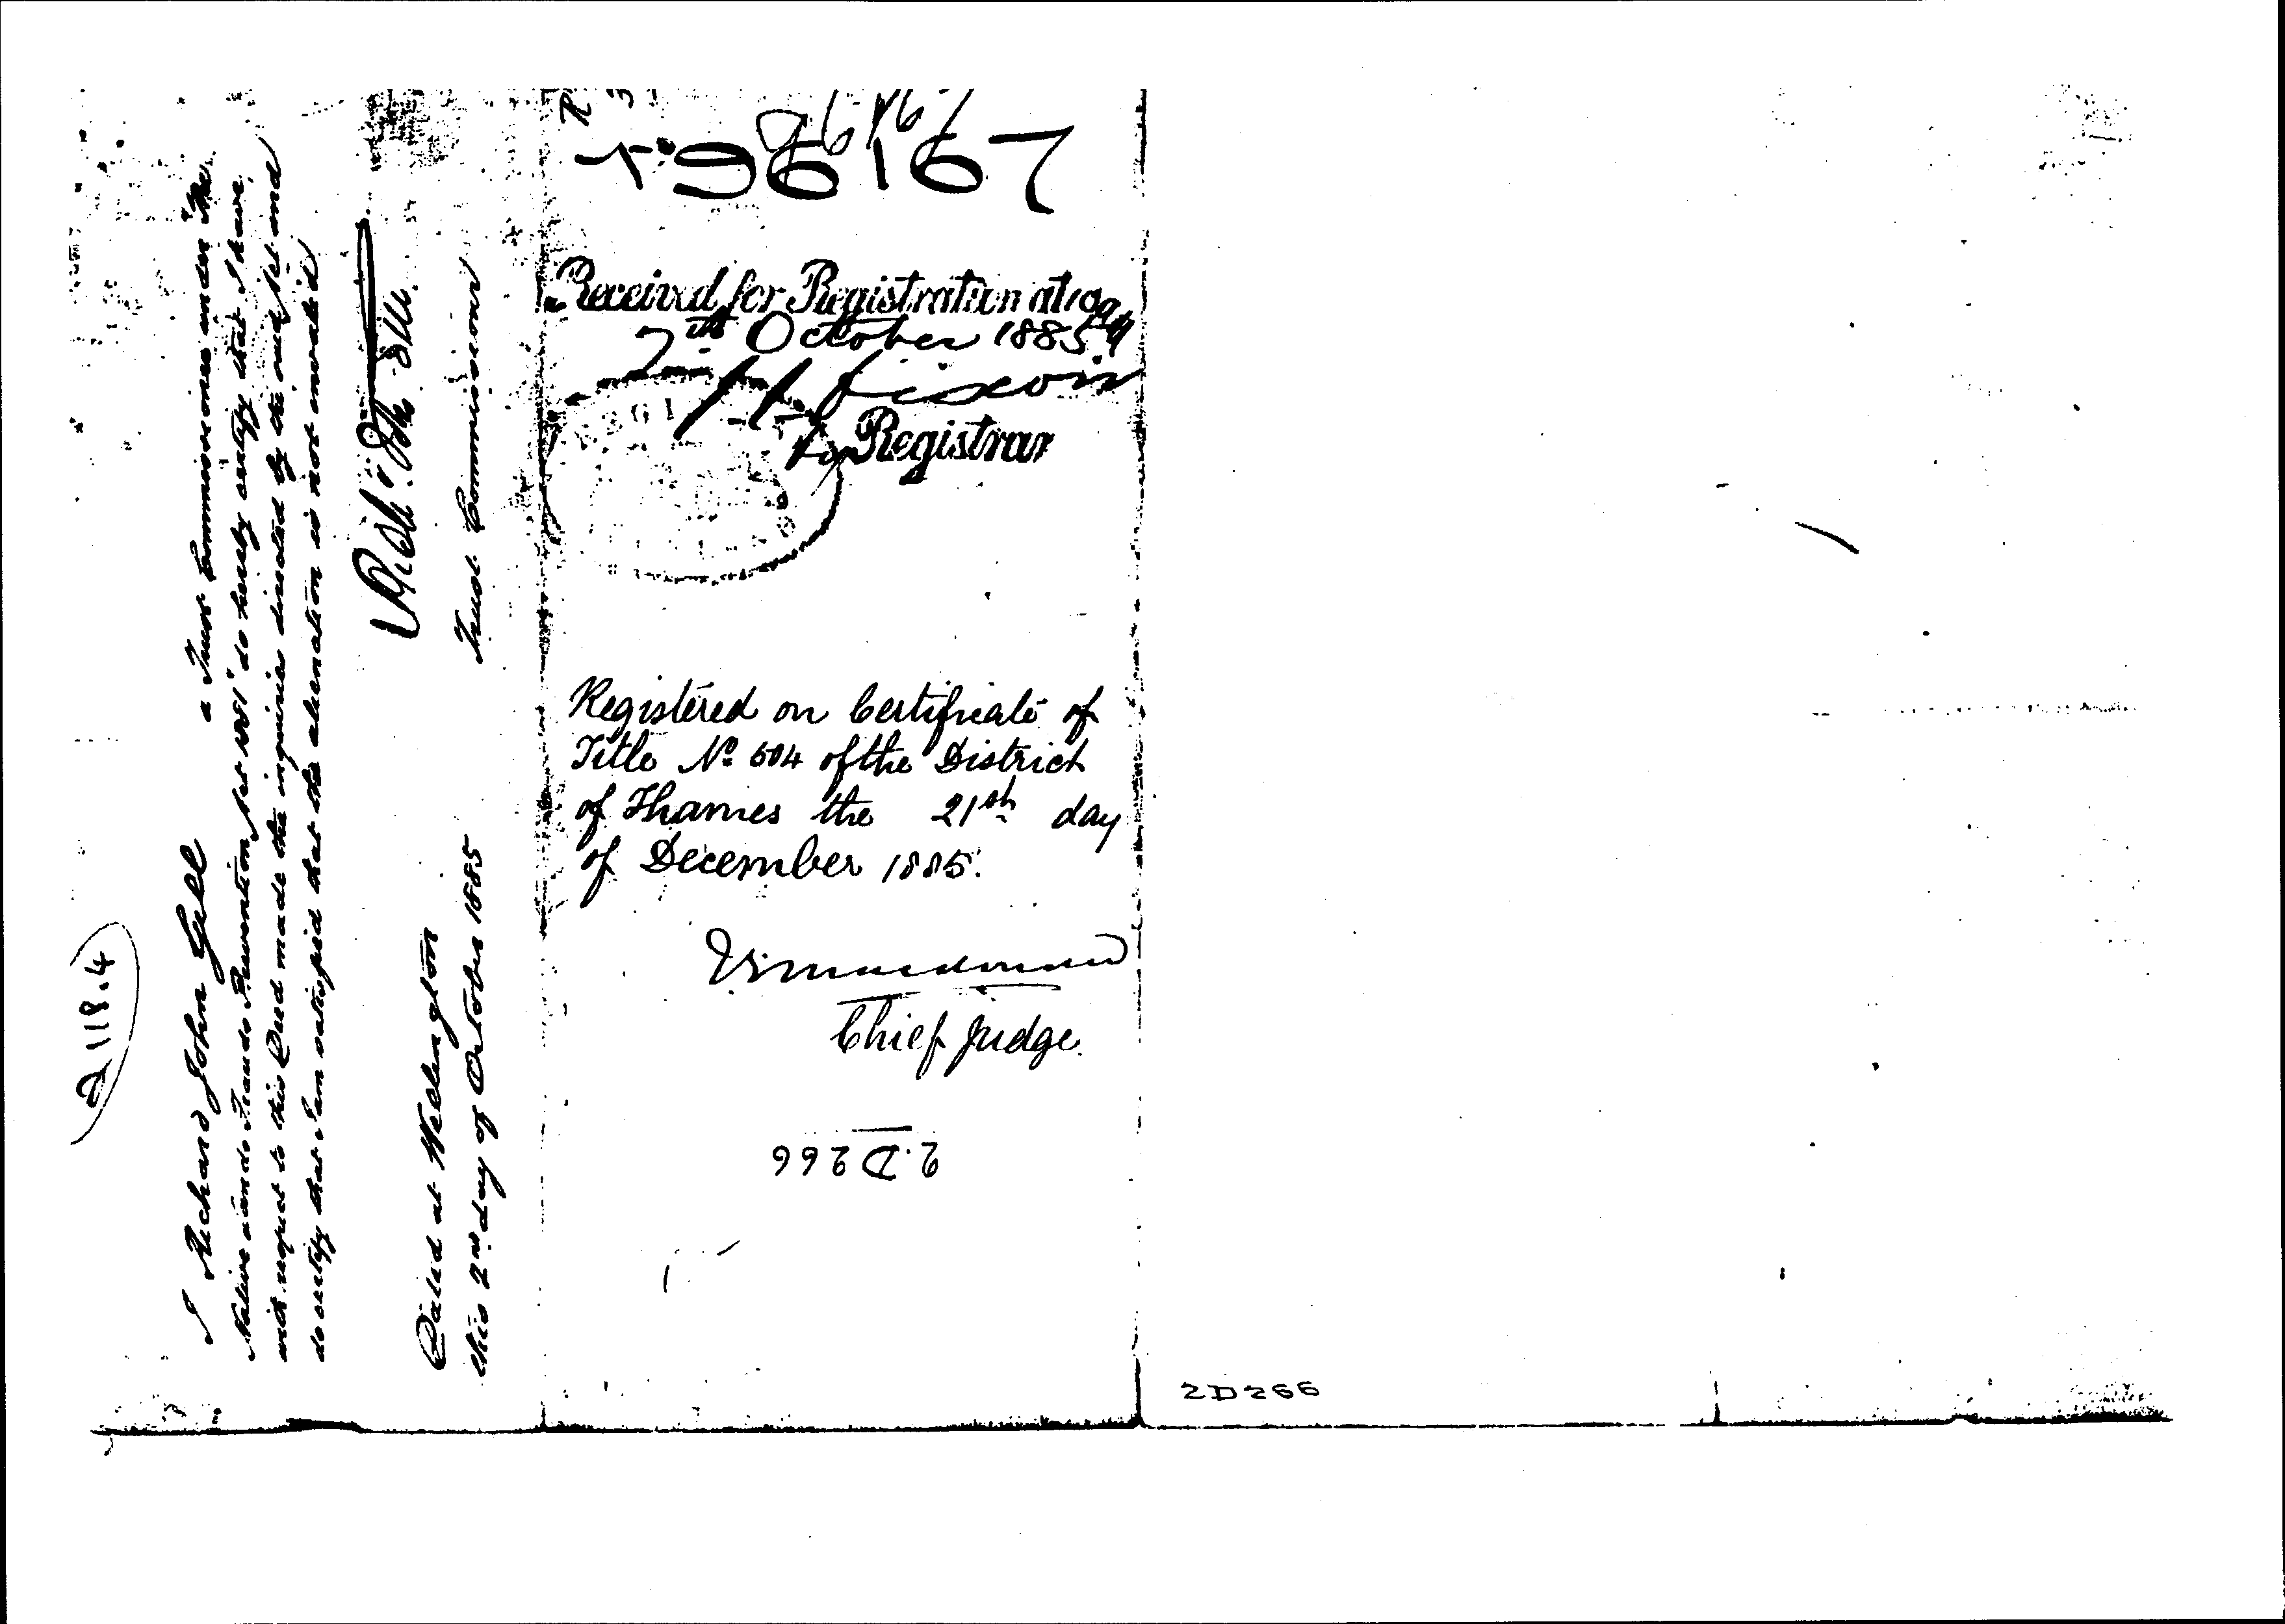 2118.4
I Richard John Gill a Trust Commissioner under "The
Native Lands Frauds Prevention Act 1881" do hereby certify that I have
with respect to this Deed made the inquiries directed by the said Act and
do certify that I am satisfied that the alienation is not invalid
Richd. Jno. Gill.
Trust Commissioner
Dated at Wellington
this 2nd day of October 1885
96167
96167
Received for Registration at 10 am
7th October 1885
Registrar
Registered on Certificate of
Title No 504 of the District
of Thames the 21st day
of December 1885.
Chief Judge.
2.D 266
2D266